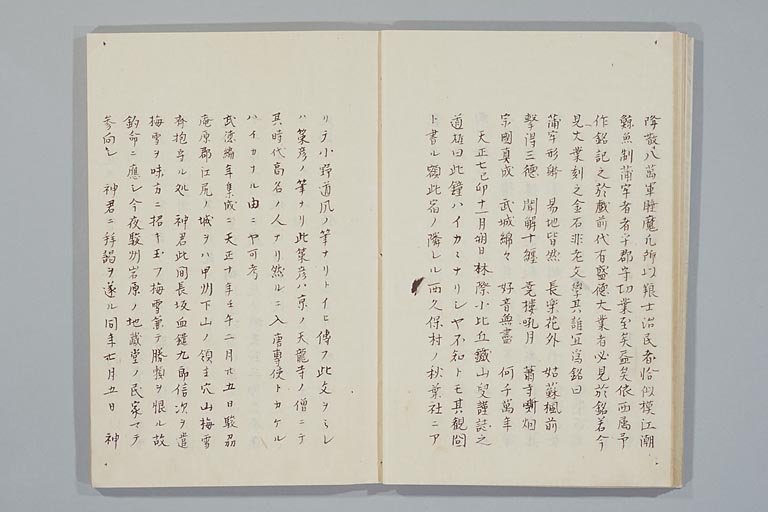 降散八萬軍胜魔凡所以賴士治民者恰似模江潮
鯨魚制蒲牢者者宇郡守功業至矣益矣依西属予
作銘記之於戲前代有盛德大業者必見於銘若今
見大業刻之金石非在文學其誰宜爲銘曰
蒲牢形躰 易地皆然 長樂花外 姑蘇楓前
擊得三德 開解十纏 憂樓吼月 蕭寺嘶烟
宗國真成 武城綿々 好音無盡 何千萬年
天正七己卯十一月朔日林際小比丘鐵山叟謹誌之
道雄曰此鐘ハイカヽナリシヤ不知トモ其觀圀
ト書ル額此宿ノ隣レル西久保村ノ秋葉社ニア
リテ小野道風ノ筆ナリトイヒ傳フ此文ヲミレ
ハ策彦ノ筆ナリ此策彦ハ京ノ天龍寺ノ僧ニテ
其時代高名ノ人ナリ然ルニ入唐專使トカケル
ハイカナル由ニヤ可考
武德編年集成ニ天正十年壬午二月廿五日駿州
庵原郡江尻ノ城ヲハ甲州下山ノ領主穴山梅雪
齊抱守ル処 神君此間長坂血鑓九郎信次ヲ遣
梅雪ヲ味方ニ招キ玉フ梅雪兼テ勝頼ヲ恨ル故
鈞命ニ應シ今夜駿州岩原ノ地藏堂ノ民家マテ
参向シ 神君ニ拜謁ヲ遂ル同年廿月五日 神